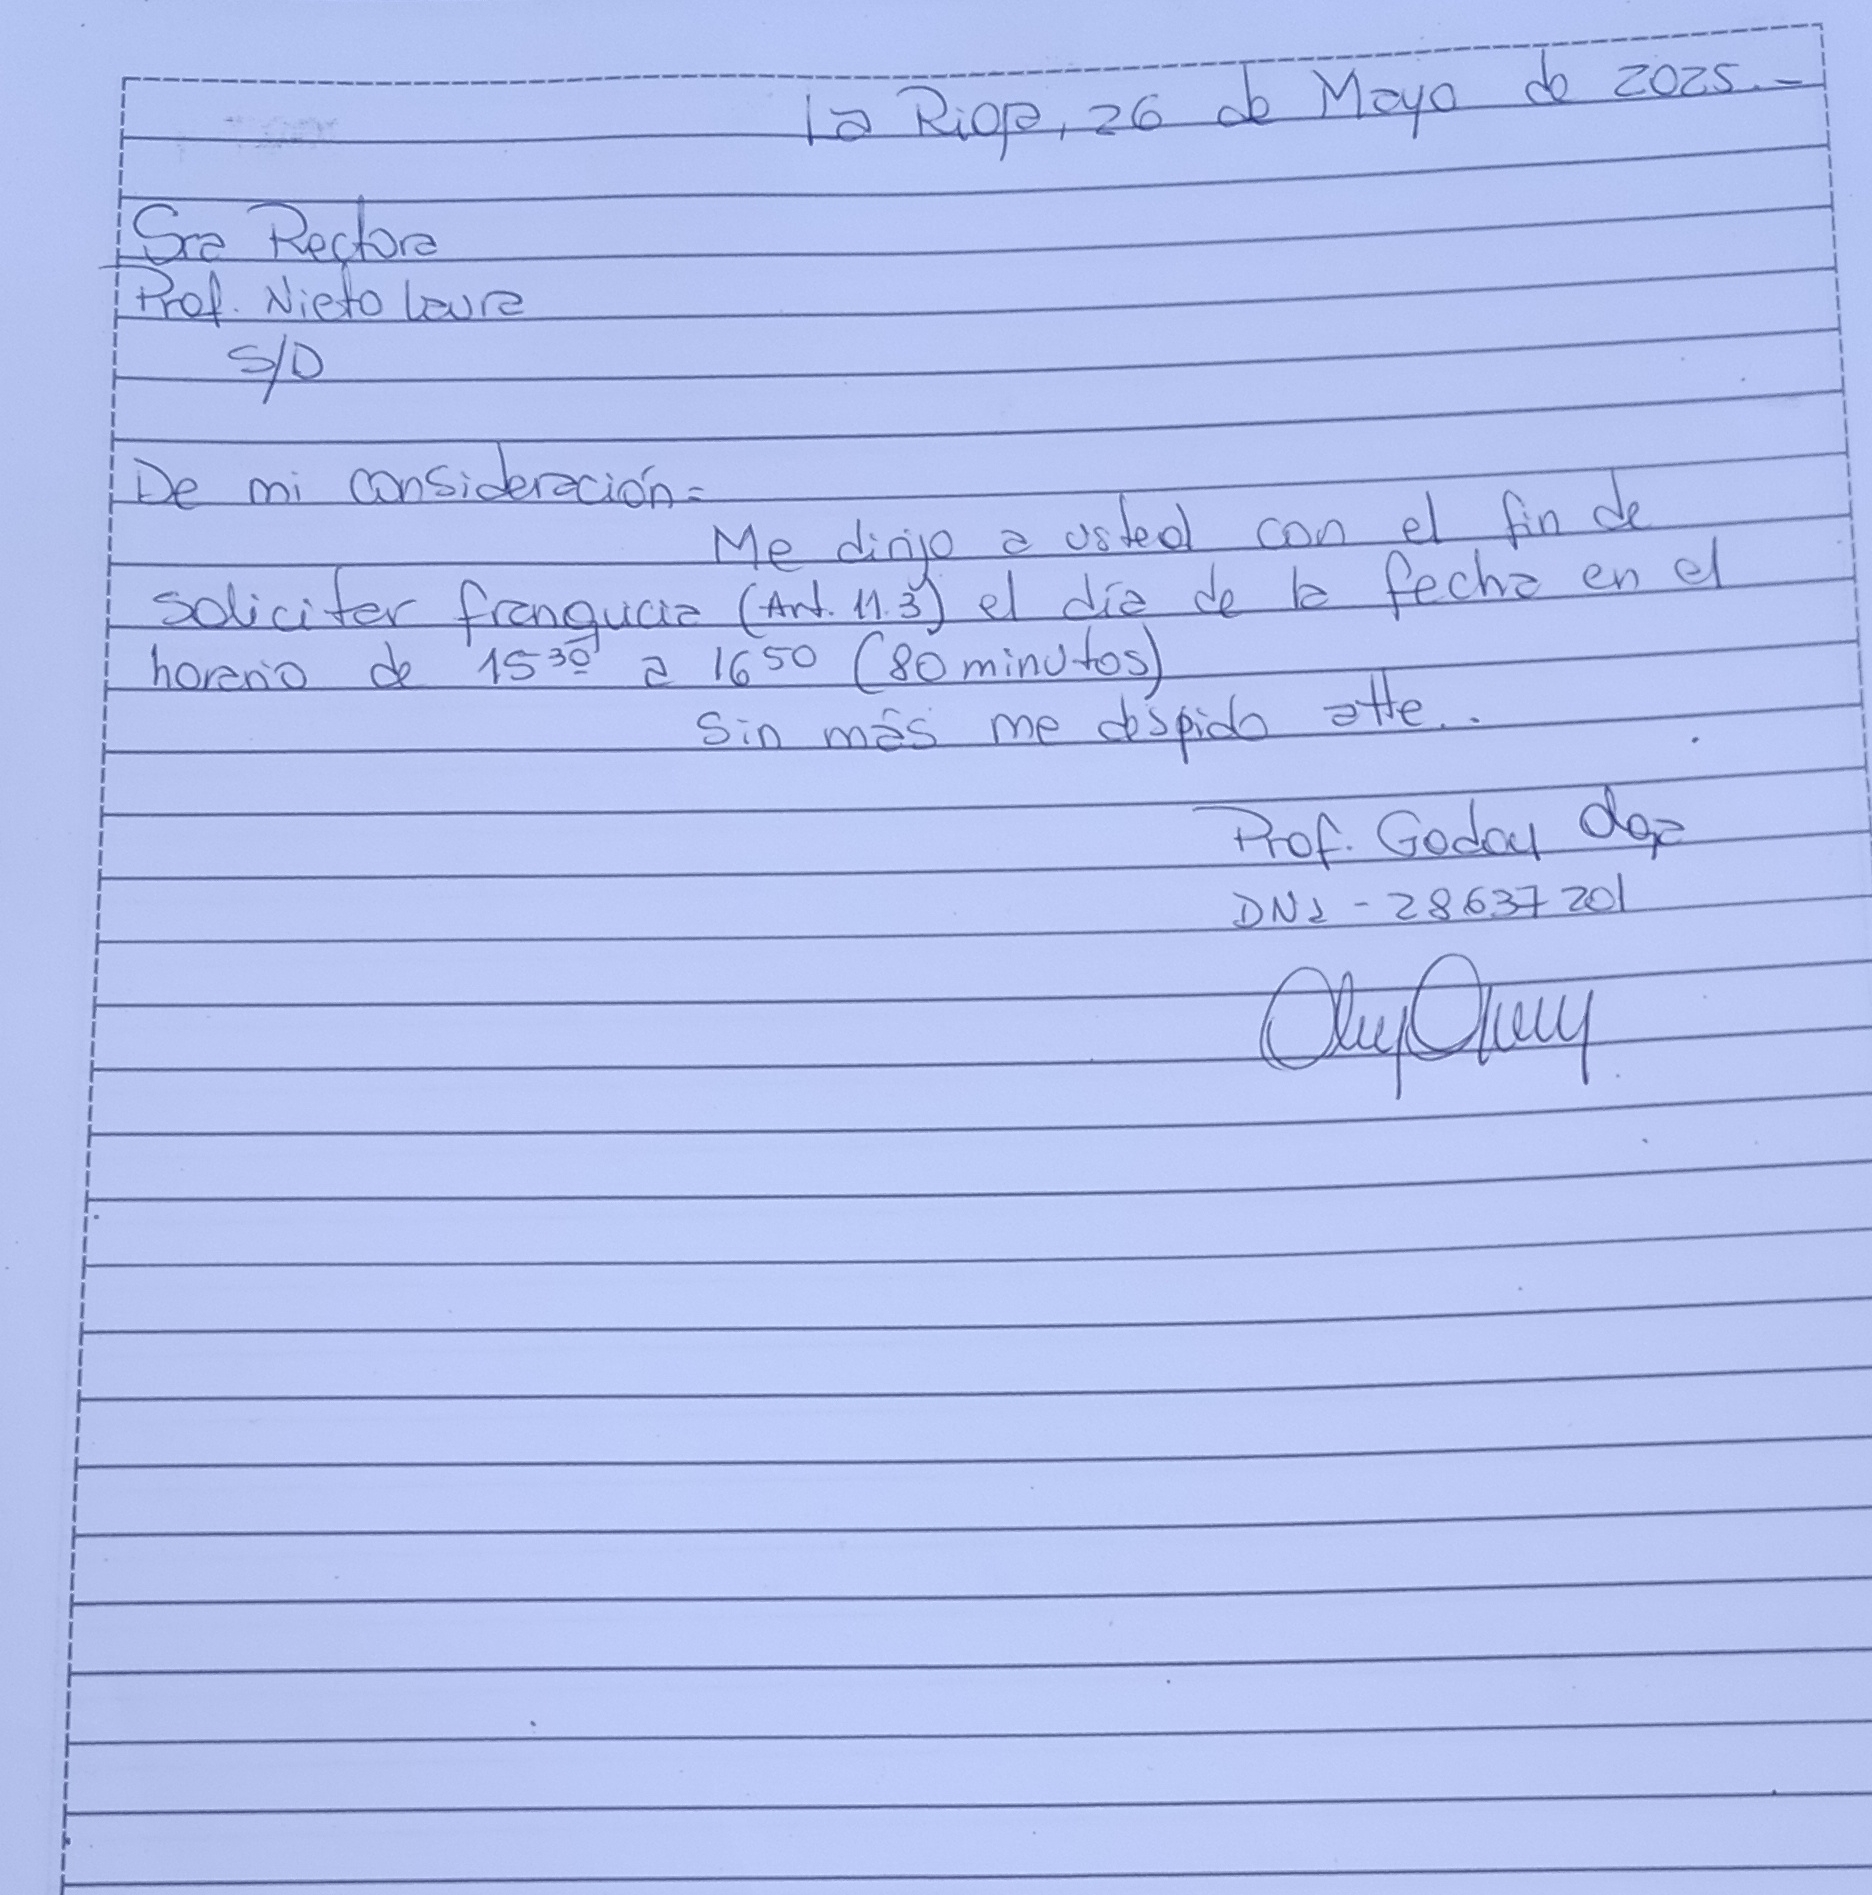 La Rioja, 26 de Mayo de 2025.-
Sra Rectora
Prof. Nieto Laura
S/D
De mi consideración=
Me dirijo a usted con el fin de
solicitar franquicia (Art. 11.3) el día de la fecha en el
horario de 15 30 a 16 50 (80 minutos)
Sin más me despido atte..
Prof. Godoy Olga
DNI - 28637201